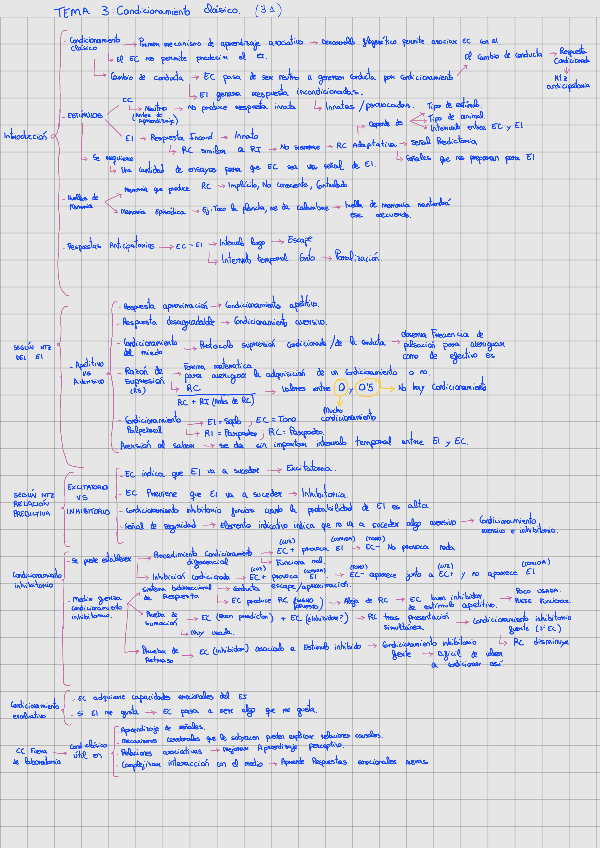 TEMA 3: Condicionamiento clásico. (31)
Introducción
- Condicionamiento clásico → Primer mecanismo de aprendizaje asociativo → Desarrollo filogenético permite asociar EC con el
EI EC no permite predecir el EI.
Cambio de conducta → EC pasa de ser neutro a generar conducta por condicionamiento
El Cambio de conducta → Respuesta Condicionada
Ntz anticipatoria
EI genera respuesta incondicionada.
- ESTÍMULOS
EC → Neutro (Antes de Aprendizaje) → No produce respuesta innata
Innatas / provocadas.
EI → Respuesta Incond → Innata
Depende de
Tipo de estímulo.
Tipo de animal
Intervalo entre EC y EI
RC similar a RI → No siempre → RC Adaptativa → Señal Predictoria
Señales que nos preparan para EI
Se requiere
Una cantidad de ensayos para que EC sea una señal de EI.
- Huellas de Memoria
Memoria que produce RC → Implícito, No consciente, Controlado
Memoria Episódica → Ej: Toco la plancha, me da calambre → huella de memoria mantendrá ese recuerdo.
- Respuestas Anticipatorias → EC - EI → Intervalo largo → Escape
Intervalo temporal Corto → Paralización
SEGÚN NTZ DEL EI
- Apetitivo VS Aversivo
- Respuesta aproximación → Condicionamiento apetitivo.
- Respuesta desagradable → Condicionamiento aversivo.
- Condicionamiento del miedo → Protocolo supresión Condicionada / de la conducta → observa Frecuencia de pulsación para averiguar como de efectivo es
- Razón de Supresión (RS) → Fórmula matemática para averiguar la adquisición de un Condicionamiento o no.
RC
RC + RI (Antes de RC)
Valores entre 0 y 0'5 → No hay Condicionamiento
Mucho condicionamiento
- Condicionamiento Palpebral → EI = Soplo, EC = Tono
RI = Parpadeo, RC: Parpadeo
Aversión al sabor → se da sin importar intervalo temporal entre EI y EC.
SEGÚN NTZ RELACIÓN PREDICTIVA
EXCITATORIO VS INHIBITORIO
- EC indica que EI va a suceder → Excitatoria.
- EC Previene que EI va a suceder → Inhibitoria.
- Condicionamiento inhibitorio funciona cuando la probabilidad de EI es alta.
- Señal de seguridad → Elemento indicativo indica que no va a suceder algo aversivo → Condicionamiento aversivo e inhibitorio.
Condicionamiento inhibitorio
- Se puede establecer
Procedimiento Condicionamiento diferencial → EC+ provoca EI → EC- No provoca nada
(LUZ) (COMIDA) (TONO)
Funciona mal.
Inhibición Condicionada → EC+ provoca EI. → EC- aparece junto a EC+ y no aparece EI
(LUZ) (COMIDA) (TONO) (LUZ) (COMIDA)
- Medir fuerza condicionamiento inhibitorio.
Sistema bidireccional de Respuesta → Conducta escape/aproximación.
EC produce RC → Aleja de RC → EC buen inhibidor de estímulo apetitivo.
POCO USADA. PUEDE FUNCIONAR.
Prueba de sumación → EC (Buen predictor) + EC (Inhibidor?) → RC tras presentación simultánea. → Condicionamiento inhibitorio fuerte (2º EC)
RC disminuye
Muy usada.
Prueba de Retraso → EC (Inhibidor) asociado a Estímulo inhibido → Condicionamiento inhibitorio fuerte → Difícil de volver a condicionar así
Condicionamiento evaluativo
- EC adquiere capacidades emocionales del EI
- Si EI me gusta → EC pasa a ser algo que me gusta.
CC Fuera de laboratorio → Cond. clásico útil en
Aprendizaje de señales.
- mecanismos cerebrales que le subyacen pueden explicar relaciones causales.
- Relaciones asociativas → Mejorar Aprendizaje perceptivo.
- Complejizar interacción con el medio → Aprende Respuestas emocionales nuevas.